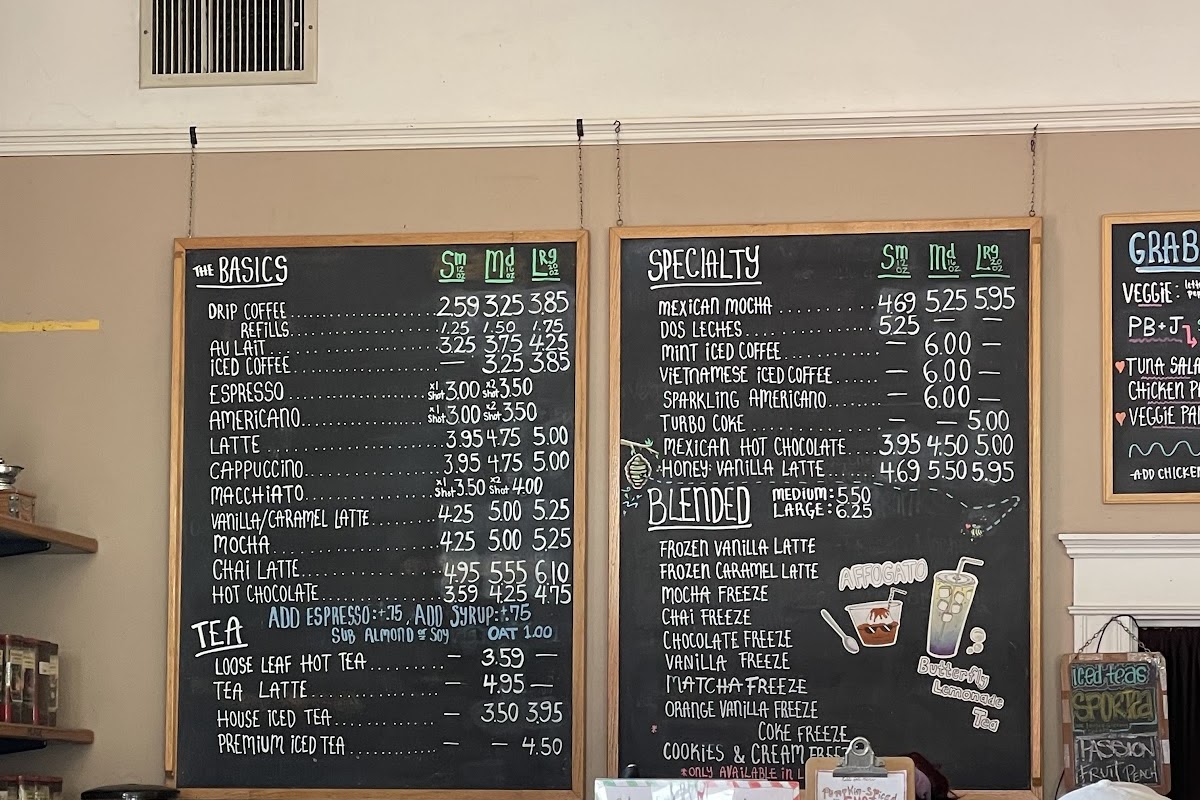 THE BASICS Sm 12 oz Md 16 oz Lrg 20 oz
DRIP COFFEE 2.59 3.25 3.85
REFILLS 1.25 1.50 1.75
AU LAIT 3.25 3.75 4.25
ICED COFFEE — 3.25 3.85
ESPRESSO x1 Shot 3.00 x2 Shot 3.50
AMERICANO x1 Shot 3.00 x2 Shot 3.50
LATTE 3.95 4.75 5.00
CAPPUCCINO 3.95 4.75 5.00
MACCHIATO x1 Shot 3.50 x2 Shot 4.00
VANILLA/CARAMEL LATTE 4.25 5.00 5.25
MOCHA 4.25 5.00 5.25
CHAI LATTE 4.95 5.55 6.10
HOT CHOCOLATE 3.59 4.25 4.75
ADD ESPRESSO:+.75, ADD SYRUP:+.75
SUB ALMOND or SOY OAT 1.00
TEA
LOOSE LEAF HOT TEA — 3.59 —
TEA LATTE — 4.95 —
HOUSE ICED TEA — 3.50 3.95
PREMIUM ICED TEA — — 4.50
SPECIALTY Sm 12 oz Md 16 oz Lrg 20 oz
MEXICAN MOCHA 4.69 5.25 5.95
DOS LECHES 5.25 — —
MINT ICED COFFEE — 6.00 —
VIETNAMESE ICED COFFEE — 6.00 —
SPARKLING AMERICANO — 6.00 —
TURBO COKE — — 5.00
MEXICAN HOT CHOCOLATE 3.95 4.50 5.00
HONEY VANILLA LATTE 4.69 5.50 5.95
BLENDED MEDIUM: 5.50
LARGE: 6.25
FROZEN VANILLA LATTE
FROZEN CARAMEL LATTE
MOCHA FREEZE
CHAI FREEZE
CHOCOLATE FREEZE
VANILLA FREEZE
MATCHA FREEZE
ORANGE VANILLA FREEZE
* COKE FREEZE
COOKIES & CREAM FREEZ
*ONLY AVAILABLE IN L
AFFOGATO
Butterfly
Lemonade
Tea
Pumpkin-Spiced
GRAB
VEGGIE:
PB+J
TUNA SALA
CHICKEN P
VEGGIE PA
-ADD CHICKEN
iced teas
SPORTea
PASSION
FRUIT PEACH